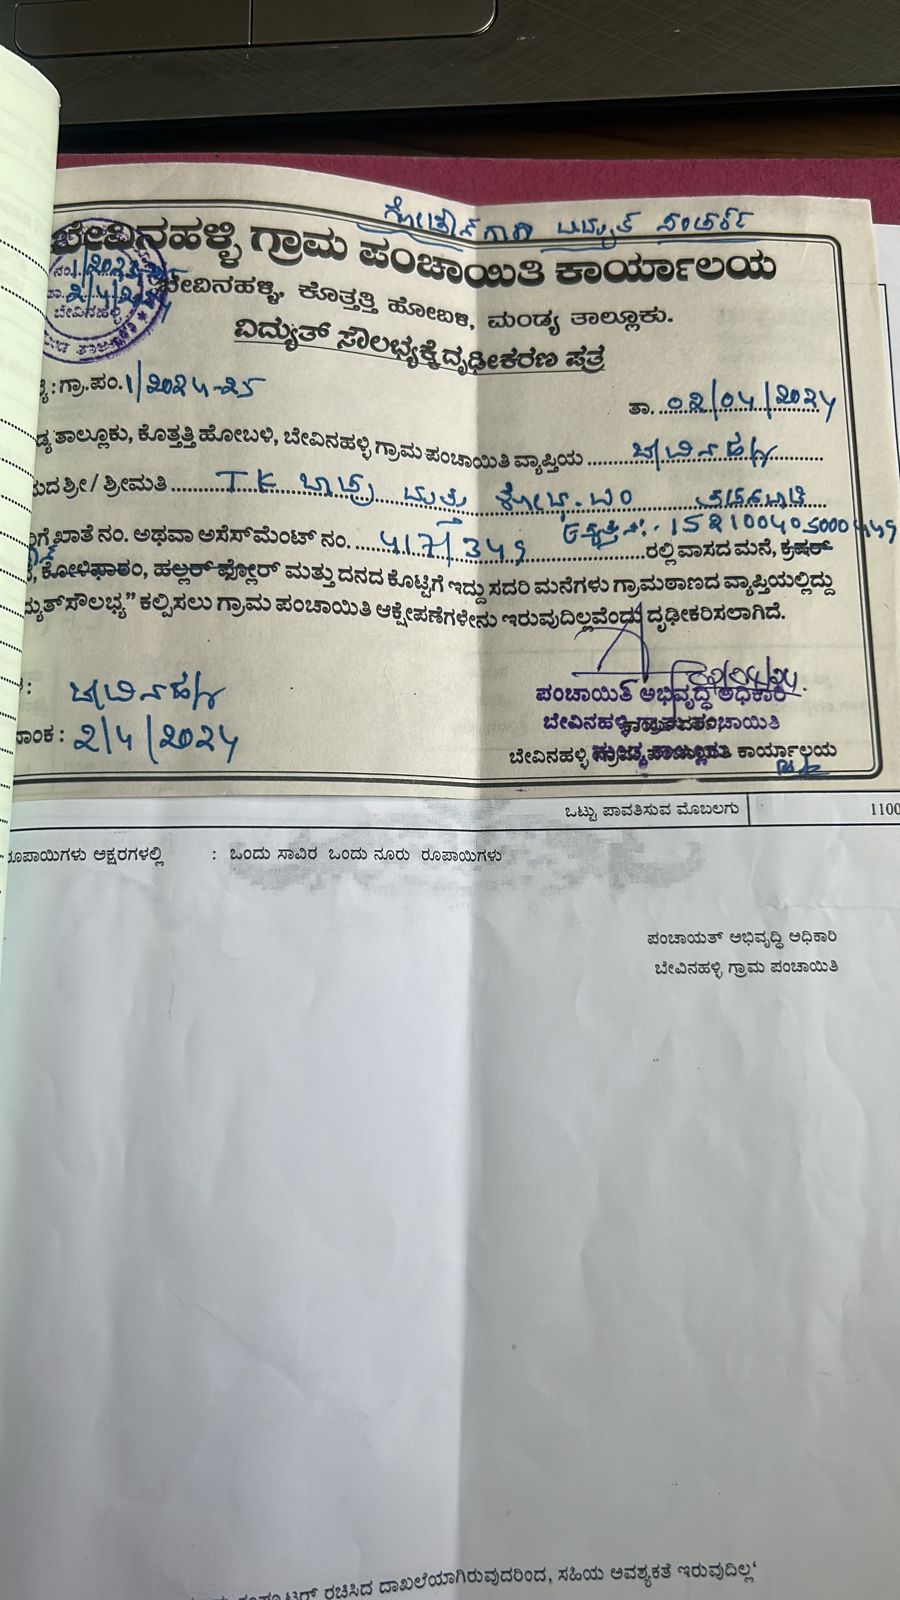 ಗೋಡೌನ್‌ಗಾಗಿ ವಿದ್ಯುತ್ ಸಂಪರ್ಕ
ಬೇವಿನಹಳ್ಳಿ ಗ್ರಾಮ ಪಂಚಾಯಿತಿ ಕಾರ್ಯಾಲಯ
ಬೇವಿನಹಳ್ಳಿ, ಕೊತ್ತತ್ತಿ ಹೋಬಳಿ, ಮಂಡ್ಯ ತಾಲ್ಲೂಕು.
ವಿದ್ಯುತ್ ಸೌಲಭ್ಯಕ್ಕೆ ದೃಢೀಕರಣ ಪತ್ರ
ಗ್ರಾ.ಪಂ. 1/2024-25
ತಾ. 02/04/2024
ತಾಲ್ಲೂಕು, ಕೊತ್ತತ್ತಿ ಹೋಬಳಿ, ಬೇವಿನಹಳ್ಳಿ ಗ್ರಾಮ ಪಂಚಾಯಿತಿ ವ್ಯಾಪ್ತಿಯ ಬೇವಿನಹಳ್ಳಿ
ಶ್ರೀ / ಶ್ರೀಮತಿ TK ಮತ್ತು
152100405000449
ಖಾತೆ ನಂ. ಅಥವಾ ಅಸೆಸ್‌ಮೆಂಟ್ ನಂ. 417/349 ರಲ್ಲಿ ವಾಸದ ಮನೆ, ಕ್ರಷರ್
ಕೋಳಿಫಾರಂ, ಹಲ್ಲರ್ ಫ್ಲೋರ್ ಮತ್ತು ದನದ ಕೊಟ್ಟಿಗೆ ಇದ್ದು ಸದರಿ ಮನೆಗಳು ಗ್ರಾಮಠಾಣದ ವ್ಯಾಪ್ತಿಯಲ್ಲಿದ್ದು
ಕಲ್ಪಿಸಲು ಗ್ರಾಮ ಪಂಚಾಯಿತಿ ಆಕ್ಷೇಪಣೆಗಳೇನು ಇರುವುದಿಲ್ಲವೆಂದು ದೃಢೀಕರಿಸಲಾಗಿದೆ.
ಬೇವಿನಹಳ್ಳಿ
2/4/2024
ಪಂಚಾಯಿತಿ ಅಭಿವೃದ್ಧಿ ಅಧಿಕಾರಿ
ಬೇವಿನಹಳ್ಳಿ ಗ್ರಾಮ ಪಂಚಾಯಿತಿ
ಬೇವಿನಹಳ್ಳಿ ಕಾರ್ಯಾಲಯ
ಒಟ್ಟು ಪಾವತಿಸುವ ಮೊಬಲಗು 1100
ರೂಪಾಯಿಗಳು ಅಕ್ಷರಗಳಲ್ಲಿ : ಒಂದು ಸಾವಿರ ಒಂದು ನೂರು ರೂಪಾಯಿಗಳು
ಪಂಚಾಯತ್ ಅಭಿವೃದ್ಧಿ ಅಧಿಕಾರಿ
ಬೇವಿನಹಳ್ಳಿ ಗ್ರಾಮ ಪಂಚಾಯಿತಿ
ರಚಿಸಿದ ದಾಖಲೆಯಾಗಿರುವುದರಿಂದ, ಸಹಿಯ ಅವಶ್ಯಕತೆ ಇರುವುದಿಲ್ಲ'